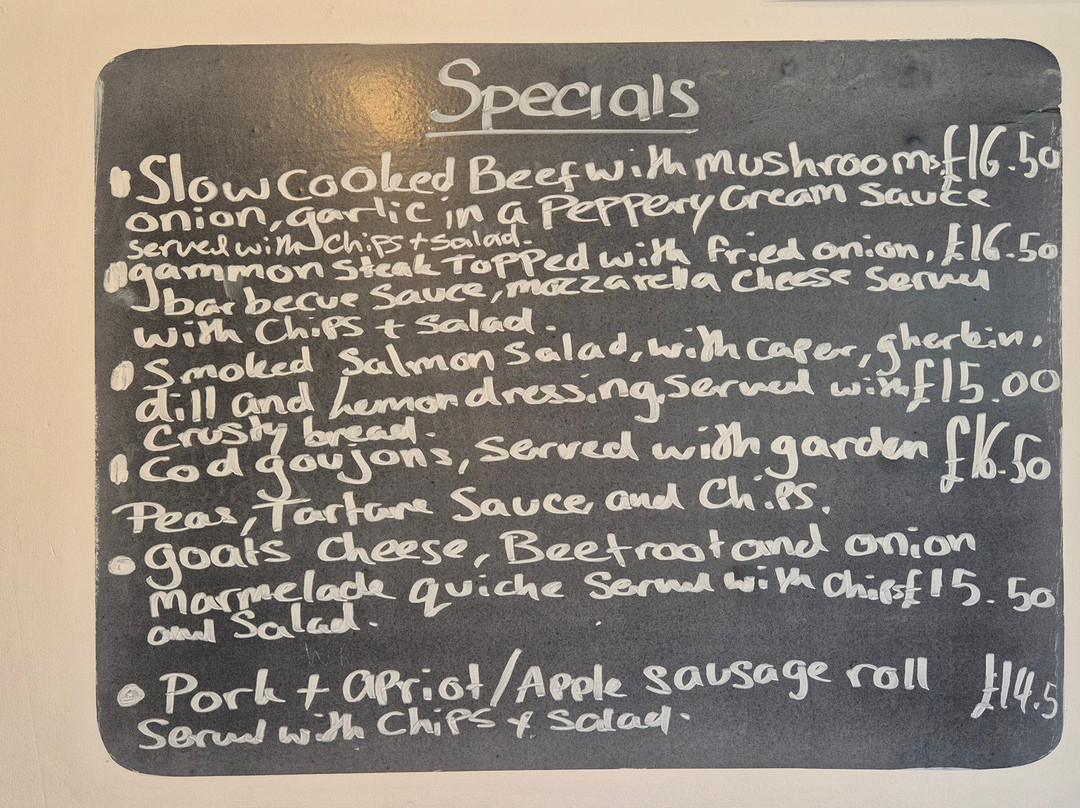 Specials
• Slow Cooked Beef with mushrooms £16.50
onion, garlic in a Peppery Cream Sauce
served with Chips + salad.
• gammon Steak Topped with fried onion, £16.50
barbecue Sauce, mozzarella Cheese Served
with Chips + Salad.
• Smoked Salmon Salad, with caper, gherkin,
dill and lemon dressing, served with £15.00
Crusty bread.
• Cod goujons, served with garden £16.50
Peas, Tartare Sauce and Chips.
• goats cheese, Beetroot and onion
marmelade quiche Served with Chips £15.50
and Salad.
• Pork + apriot/Apple sausage roll £14.5
Served with Chips + salad.